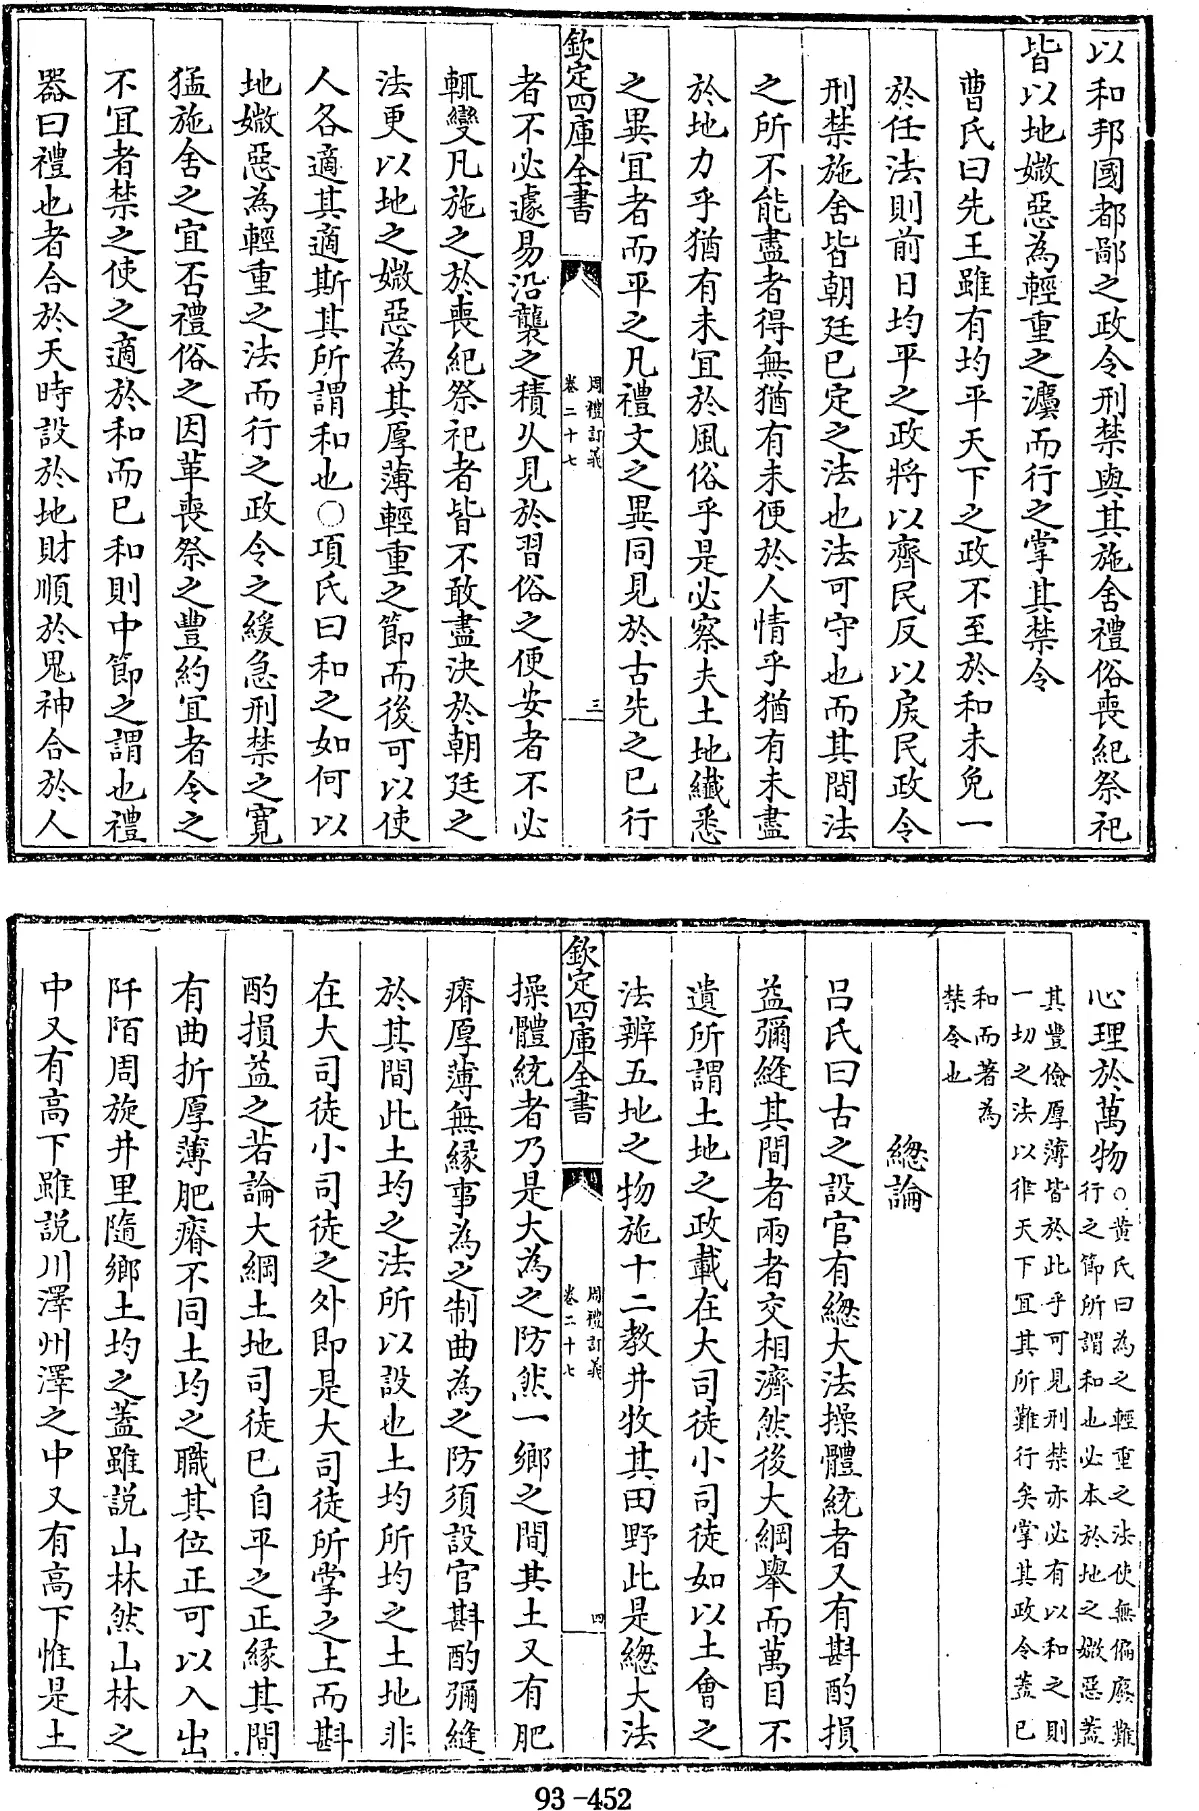 以和邦國都鄙之政令刑禁與其施舍禮俗喪紀祭祀
皆以地媺惡為輕重之灋而行之掌其禁令
曹氏曰先王雖有均平天下之政不至於和未免一
於任法則前日均平之政將以齊民反以戾民政令
刑禁施舍皆朝廷已定之法也法可守也而其間法
之所不能盡者得無猶有未便於人情乎猶有未盡
於地力乎猶有未宜於風俗乎是必察夫土地纎悉
之異宜者而平之凡禮文之異同見於古先之已行
欽定四庫全書
周禮訂義
卷二十七
三
者不必遽易沿襲之積久見於習俗之便安者不必
輒變凡施之於喪紀祭祀者皆不敢盡決於朝廷之
法更以地之媺惡為其厚薄輕重之節而後可以使
人各適其適斯其所謂和也○項氏曰和之如何以
地媺惡為輕重之法而行之政令之緩急刑禁之寛
猛施舍之宜否禮俗之因革喪祭之豐約宜者令之
不宜者禁之使之適於和而已和則中節之謂也禮
器曰禮也者合於天時設於地財順於鬼神合於人
心理於萬物○黄氏曰為之輕重之法使無偏廢難
行之節所謂和也必本於地之媺惡蓋
其豐儉厚薄皆於此乎可見刑禁亦必有以和之則
一切之法以律天下宜其所難行矣掌其政令蓋已
和而著為
禁令也
總論
呂氏曰古之設官有總大法操體統者又有斟酌損
益彌縫其間者兩者交相濟然後大綱舉而萬目不
遺所謂土地之政載在大司徒小司徒如以土會之
法辨五地之物施十二教井牧其田野此是總大法
欽定四庫全書
周禮訂義
卷二十七
四
操體統者乃是大為之防然一鄉之間其土又有肥
瘠厚薄無縁事為之制曲為之防須設官斟酌彌縫
於其間此土均之法所以設也土均所均之土地非
在大司徒小司徒之外即是大司徒所掌之土而斟
酌損益之若論大綱土地司徒已自平之正縁其間
有曲折厚薄肥瘠不同土均之職其位正可以入出
阡陌周旋井里隨鄉土均之蓋雖説山林然山林之
中又有高下雖説川澤川澤之中又有高下惟是土
93-452